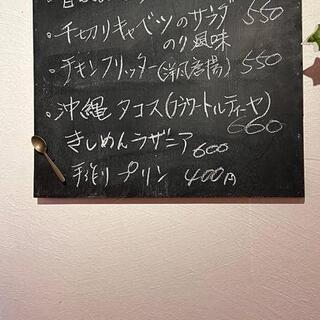 ・千切りキャベツのサラダ 550
のり風味
・チキンフリッター(洋風唐揚) 550
・沖縄タコス(フラワートルティーヤ)
660
きしめんラザニア 600
手作りプリン 400円